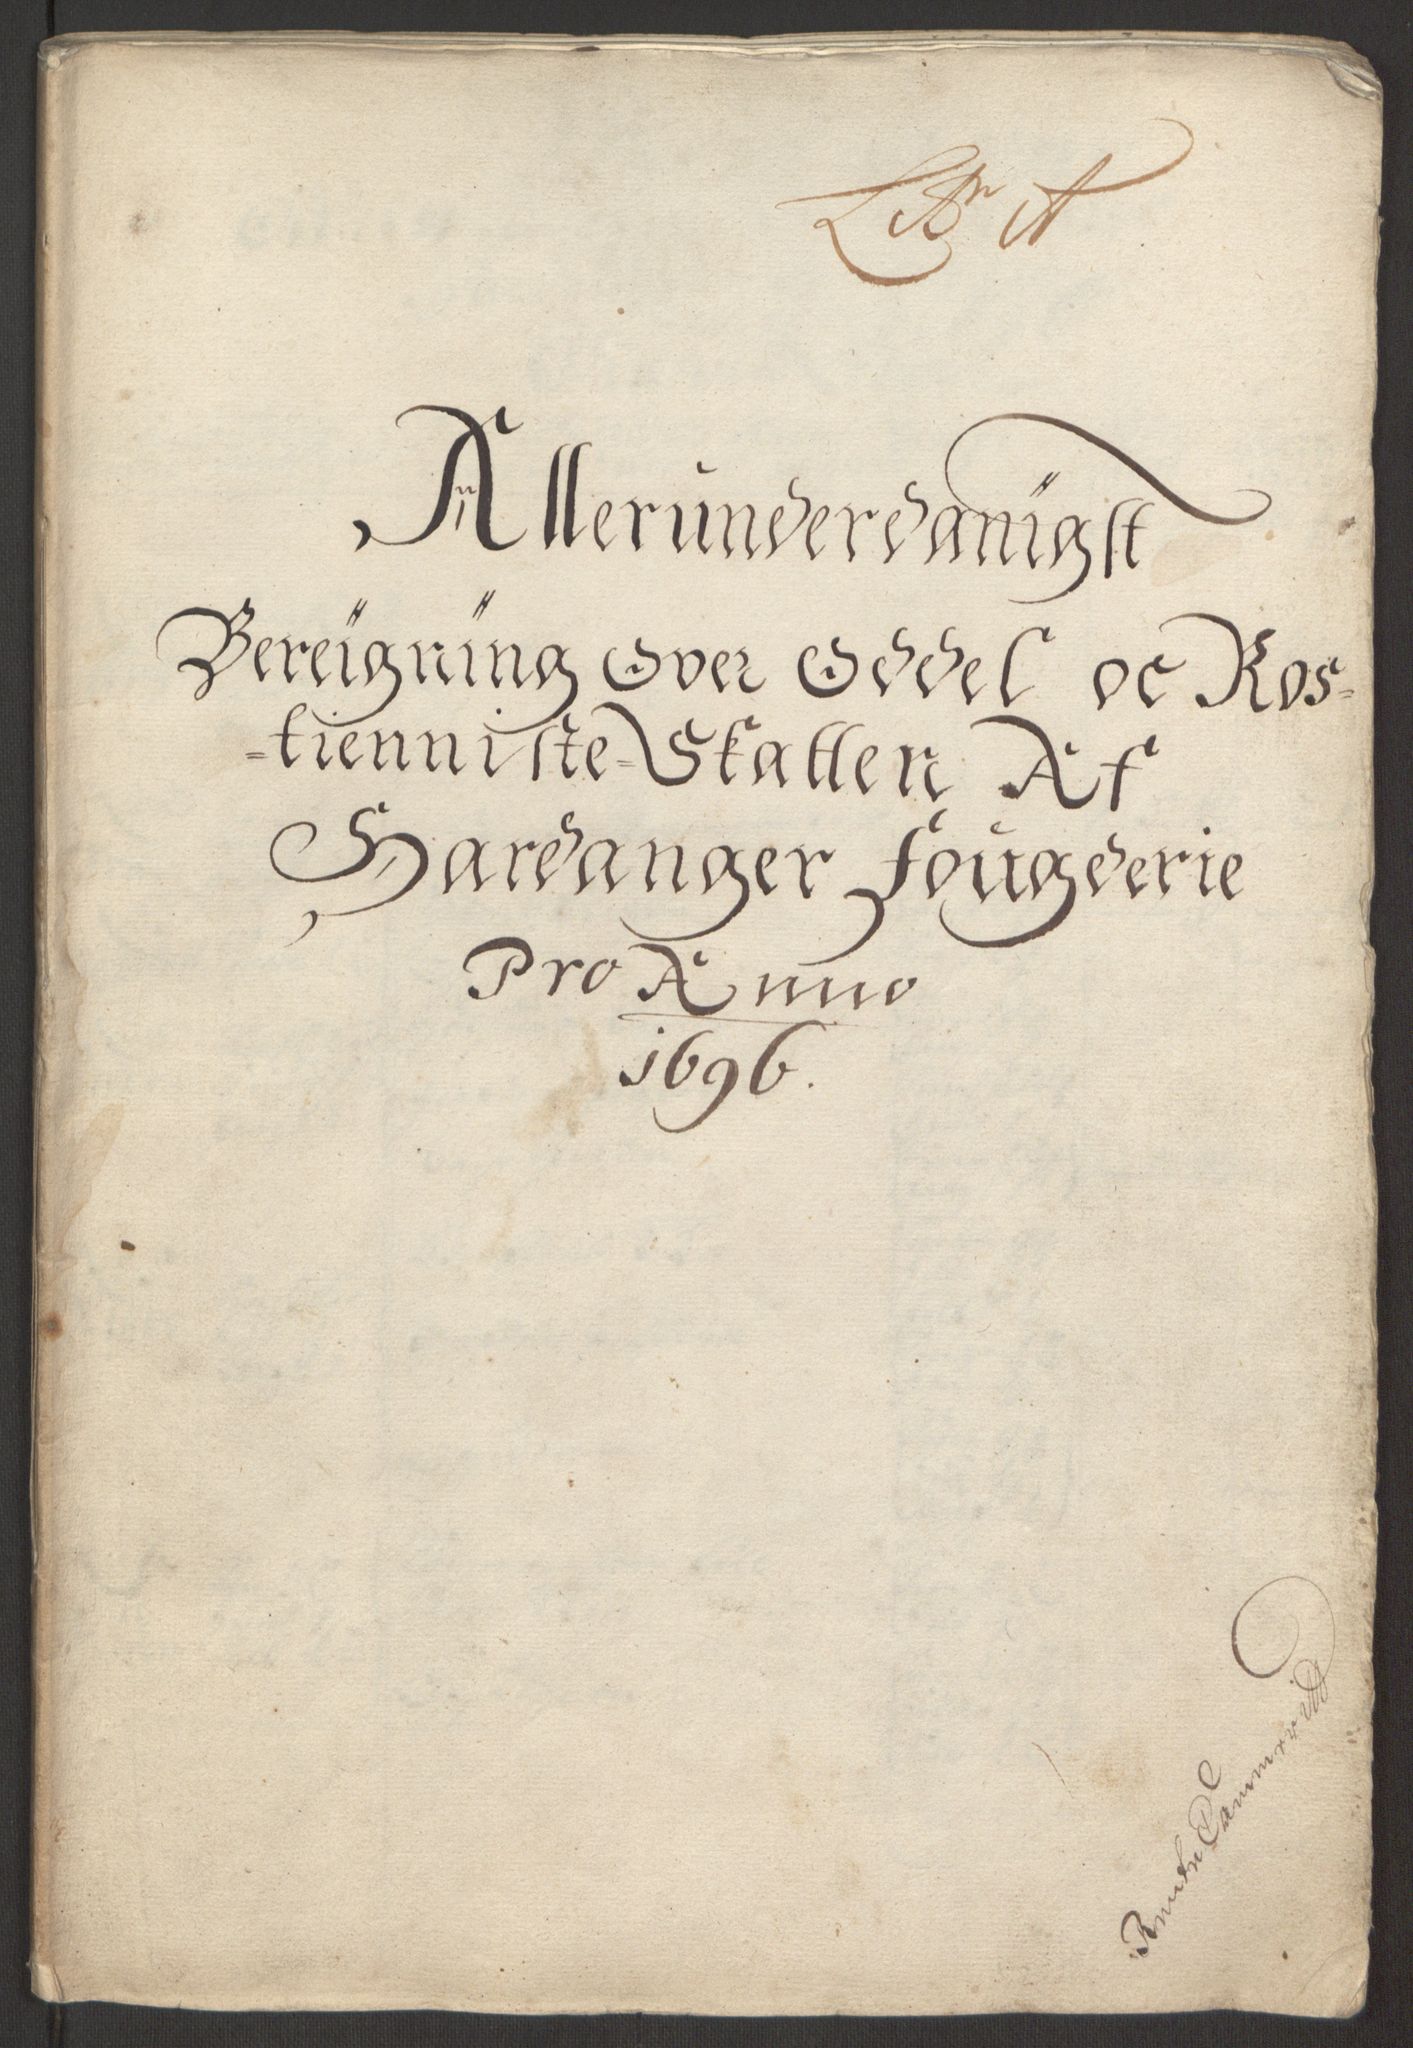 Litr A
Alleründerdanigst
Bereigning Over Oddel oc Ros-
-tienniste-Skatten Af
Hardanger Fougderie
Pro Anno
1696.